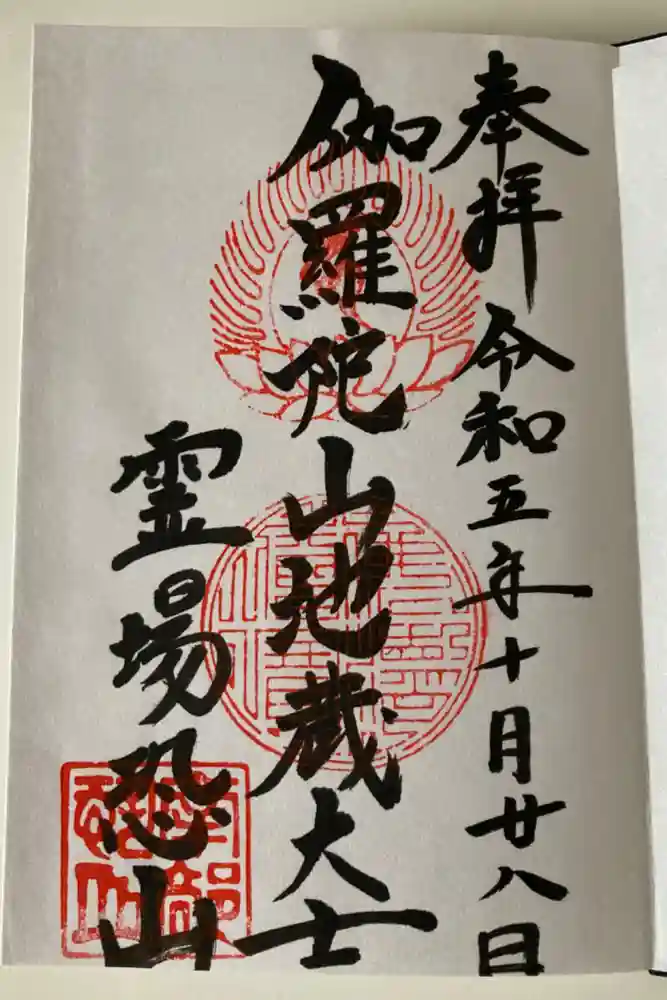 奉拝 令和五年十月廿八日
伽羅陀山地蔵大士
霊場恐山
南部
恐山